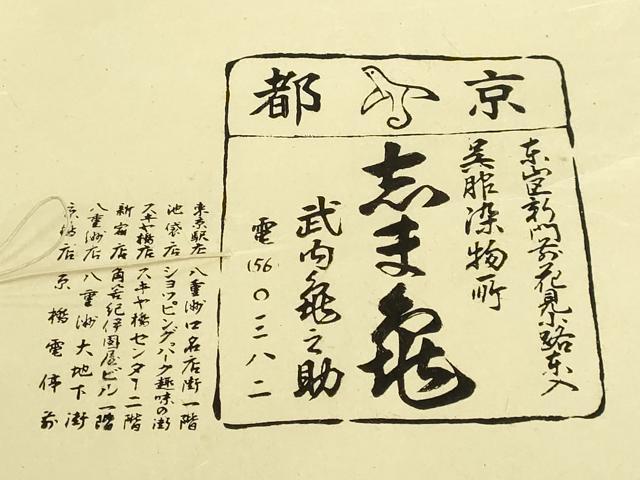 京都
東山区新門前花見小路東入
呉服染物所
志ま亀
武内亀之助
電(56)〇三八二
東京駅店 八重洲口名店街一階
池袋店 ショッピングパーク趣味の街
スキヤ橋店 スキヤ橋センター二階
新宿店 角筈紀伊國屋ビル一階
八重洲店 八重洲大地下街
京橋店 京橋電停前